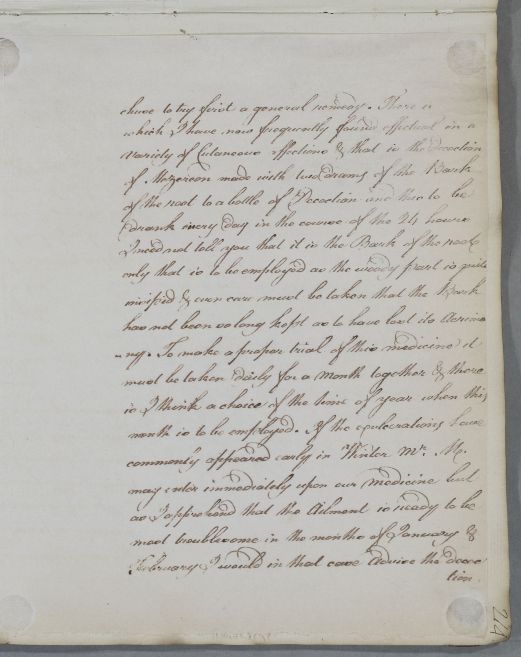 chuse to try first a general remedy. There is
which I have now frequently found effectual in a
variety of Cutaneous affections & that is the Decoction
of Mezereon made with two drams of the Bark
of the root to a bottle of Decoction and this to be
drank every day in the course of the 24 hours
I need not tell you that it is the Bark of the root
only that is to be employed as the woody part is quite
insipid & even care must be taken that the Bark
has not been so long kept as to have lost its Acrimo
ny. To make a proper trial of this medicine it
must be taken daily for a month together & there
is I think a choice of the time of year when this
month is to be employed. If the exulcerations have
commonly appeared early in Winter Mr. M.
may enter immediately upon our medicine but
as I apprehend that the Ailment is ready to be
most troublesome in the months of January &
February I would in that case advise the decoc
tion.
224